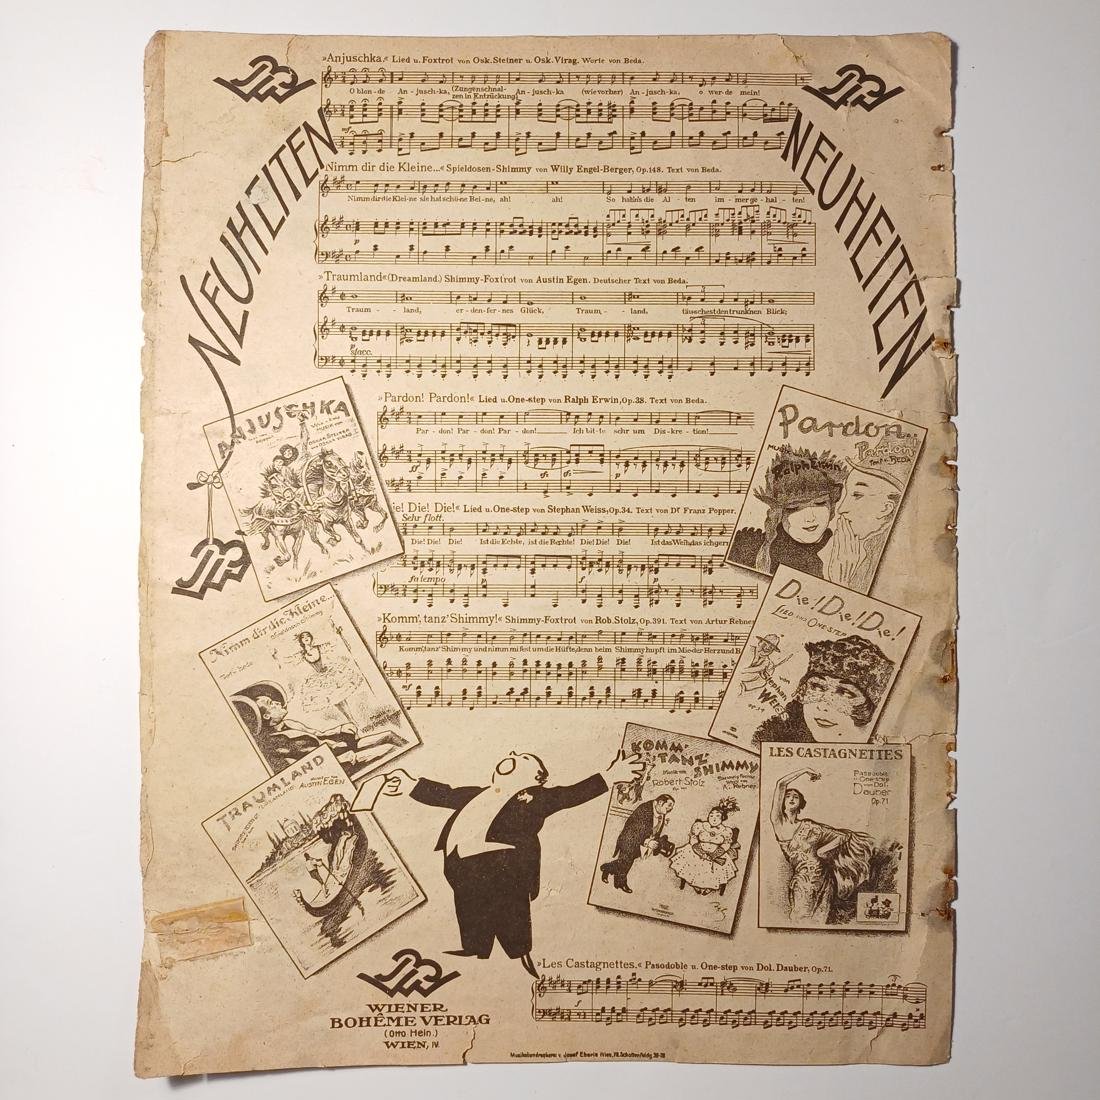 NEUHEITEN
NEUHEITEN
»Anjuschka.« Lied u. Foxtrot von Osk. Steiner u. Osk. Virag. Worte von Beda.
(Zungenschnal-
O blon-de An-jusch-ka, zen in Entzückung) An-jusch-ka (wie vorher) An-jusch-ka, o wer-de mein!
Nimm dir die Kleine...« Spieldosen-Shimmy von Willy Engel-Berger, Op.148. Text von Beda.
Nimm dir die Klei-ne sie hat schö-ne Bei-ne, ah! ah! So hab'n's die Al-ten im-mer ge-hal-ten!
»Traumland« (Dreamland.) Shimmy-Foxtrot von Austin Egen. Deutscher Text von Beda.
Traum-land, er-den-fer-nes Glück, Traum-land, täuschest den trunknen Blick;
stacc.
»Pardon! Pardon!« Lied u. One-step von Ralph Erwin, Op.38. Text von Beda.
Par-don! Par-don! Par-don! Ich bit-te sehr um Dis-kre-tion!
ie! Die! Die!« Lied u. One-step von Stephan Weiss, Op.34. Text von Dr Franz Popper.
Sehr flott.
Die! Die! Die! Ist die Echte, ist die Rechte! Die! Die! Die! Ist das Weib, das ich gern
a tempo
»Komm', tanz' Shimmy!« Shimmy-Foxtrot von Rob. Stolz, Op. 391. Text von Artur Rebner
Komm', tanz' Shimmy und nimm mi fest um die Hüfte, denn beim Shimmy hupft im Mieder Herz und B
ANJUSCHKA
MUSIK VON
OSCAR STEINER
Pardon
Pardon
MUSIK
Ralph Erwin
Text von BEDA
Nimm dir die Kleine...
Text v. Beda
Musik v.
Die! Die! Die!
LIED UND ONESTEP
von
Stephan
WEISS
op. 34
TRAUMLAND
AUSTIN EGEN
KOMM'
TANZ'
SHIMMY
Musik von
Robert Stolz
A. Rebner
LES CASTAGNETTES
Pasodoble
u. One-step
von Dol.
Dauber
Op.71
WIENER
BOHÊME VERLAG
(Otto Hein.)
WIEN, IV.
»Les Castagnettes.« Pasodoble u. One-step von Dol. Dauber, Op.71.
Musikaliendruckerei v. Josef Eberle Wien, VII. Schottenfeldg. 36-38